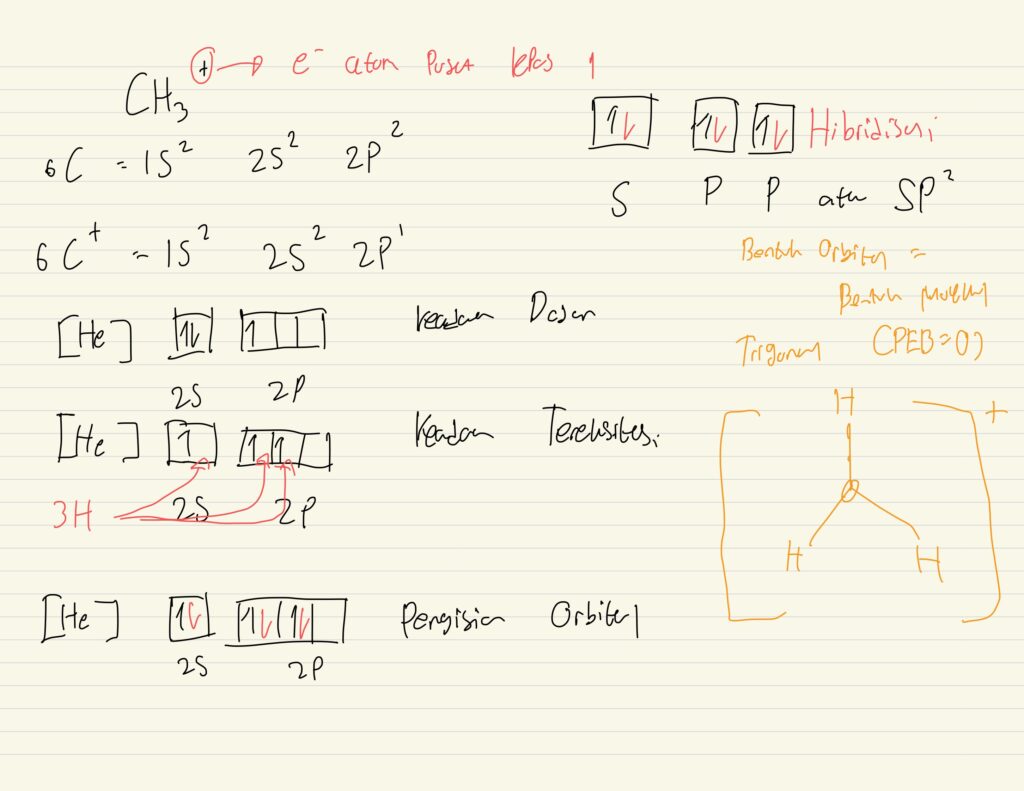 CH₃⁺ → e⁻ atom Pusat lepas 1
₆C = 1S² 2S² 2P²
6C⁺ = 1S² 2S² 2P¹
[He] 1⇂ 1 Keadaan Dasar
2S 2P
[He] 1 1 1 Keadaan Tereksitasi
3H 2S 2P
[He] 1⇂ 1⇂ 1⇂ Pengisian Orbital
2S 2P
1⇂ 1⇂ 1⇂ Hibridisasi
S P P atau SP²
Bentuk Orbital =
Bentuk Molekul
Trigonal (PEB=0)
[ H ]+
H H